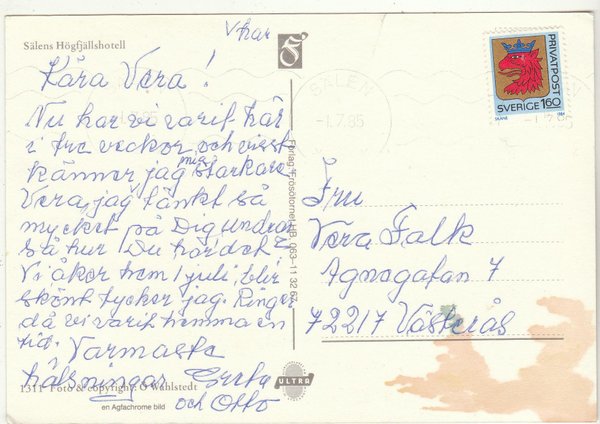 Sälens Högfjällshotell
V har
Kära Vera!
Nu har vi varit här
i tre veckor och visst
känner jag mig starkare
Vera, jag tänkt så
mycket på Dig undrar
så hur Du har det?
Vi åker hem 1 juli, blir
skönt tycker jag. Ringer
då vi varit hemma en
tid. Varmaste
hälsningar
och Otto
1311 Foto & copyright: O Wahlstedt
en Agfachrome bild
ULTRA
Förlag Frösötornet HB. 063-11 32 67
SÄLEN
-1.7.85
PRIVATPOST
SVERIGE 160
SKÅNE
Fru
Vera Falk
Agnogatan 7
72217 Västerås